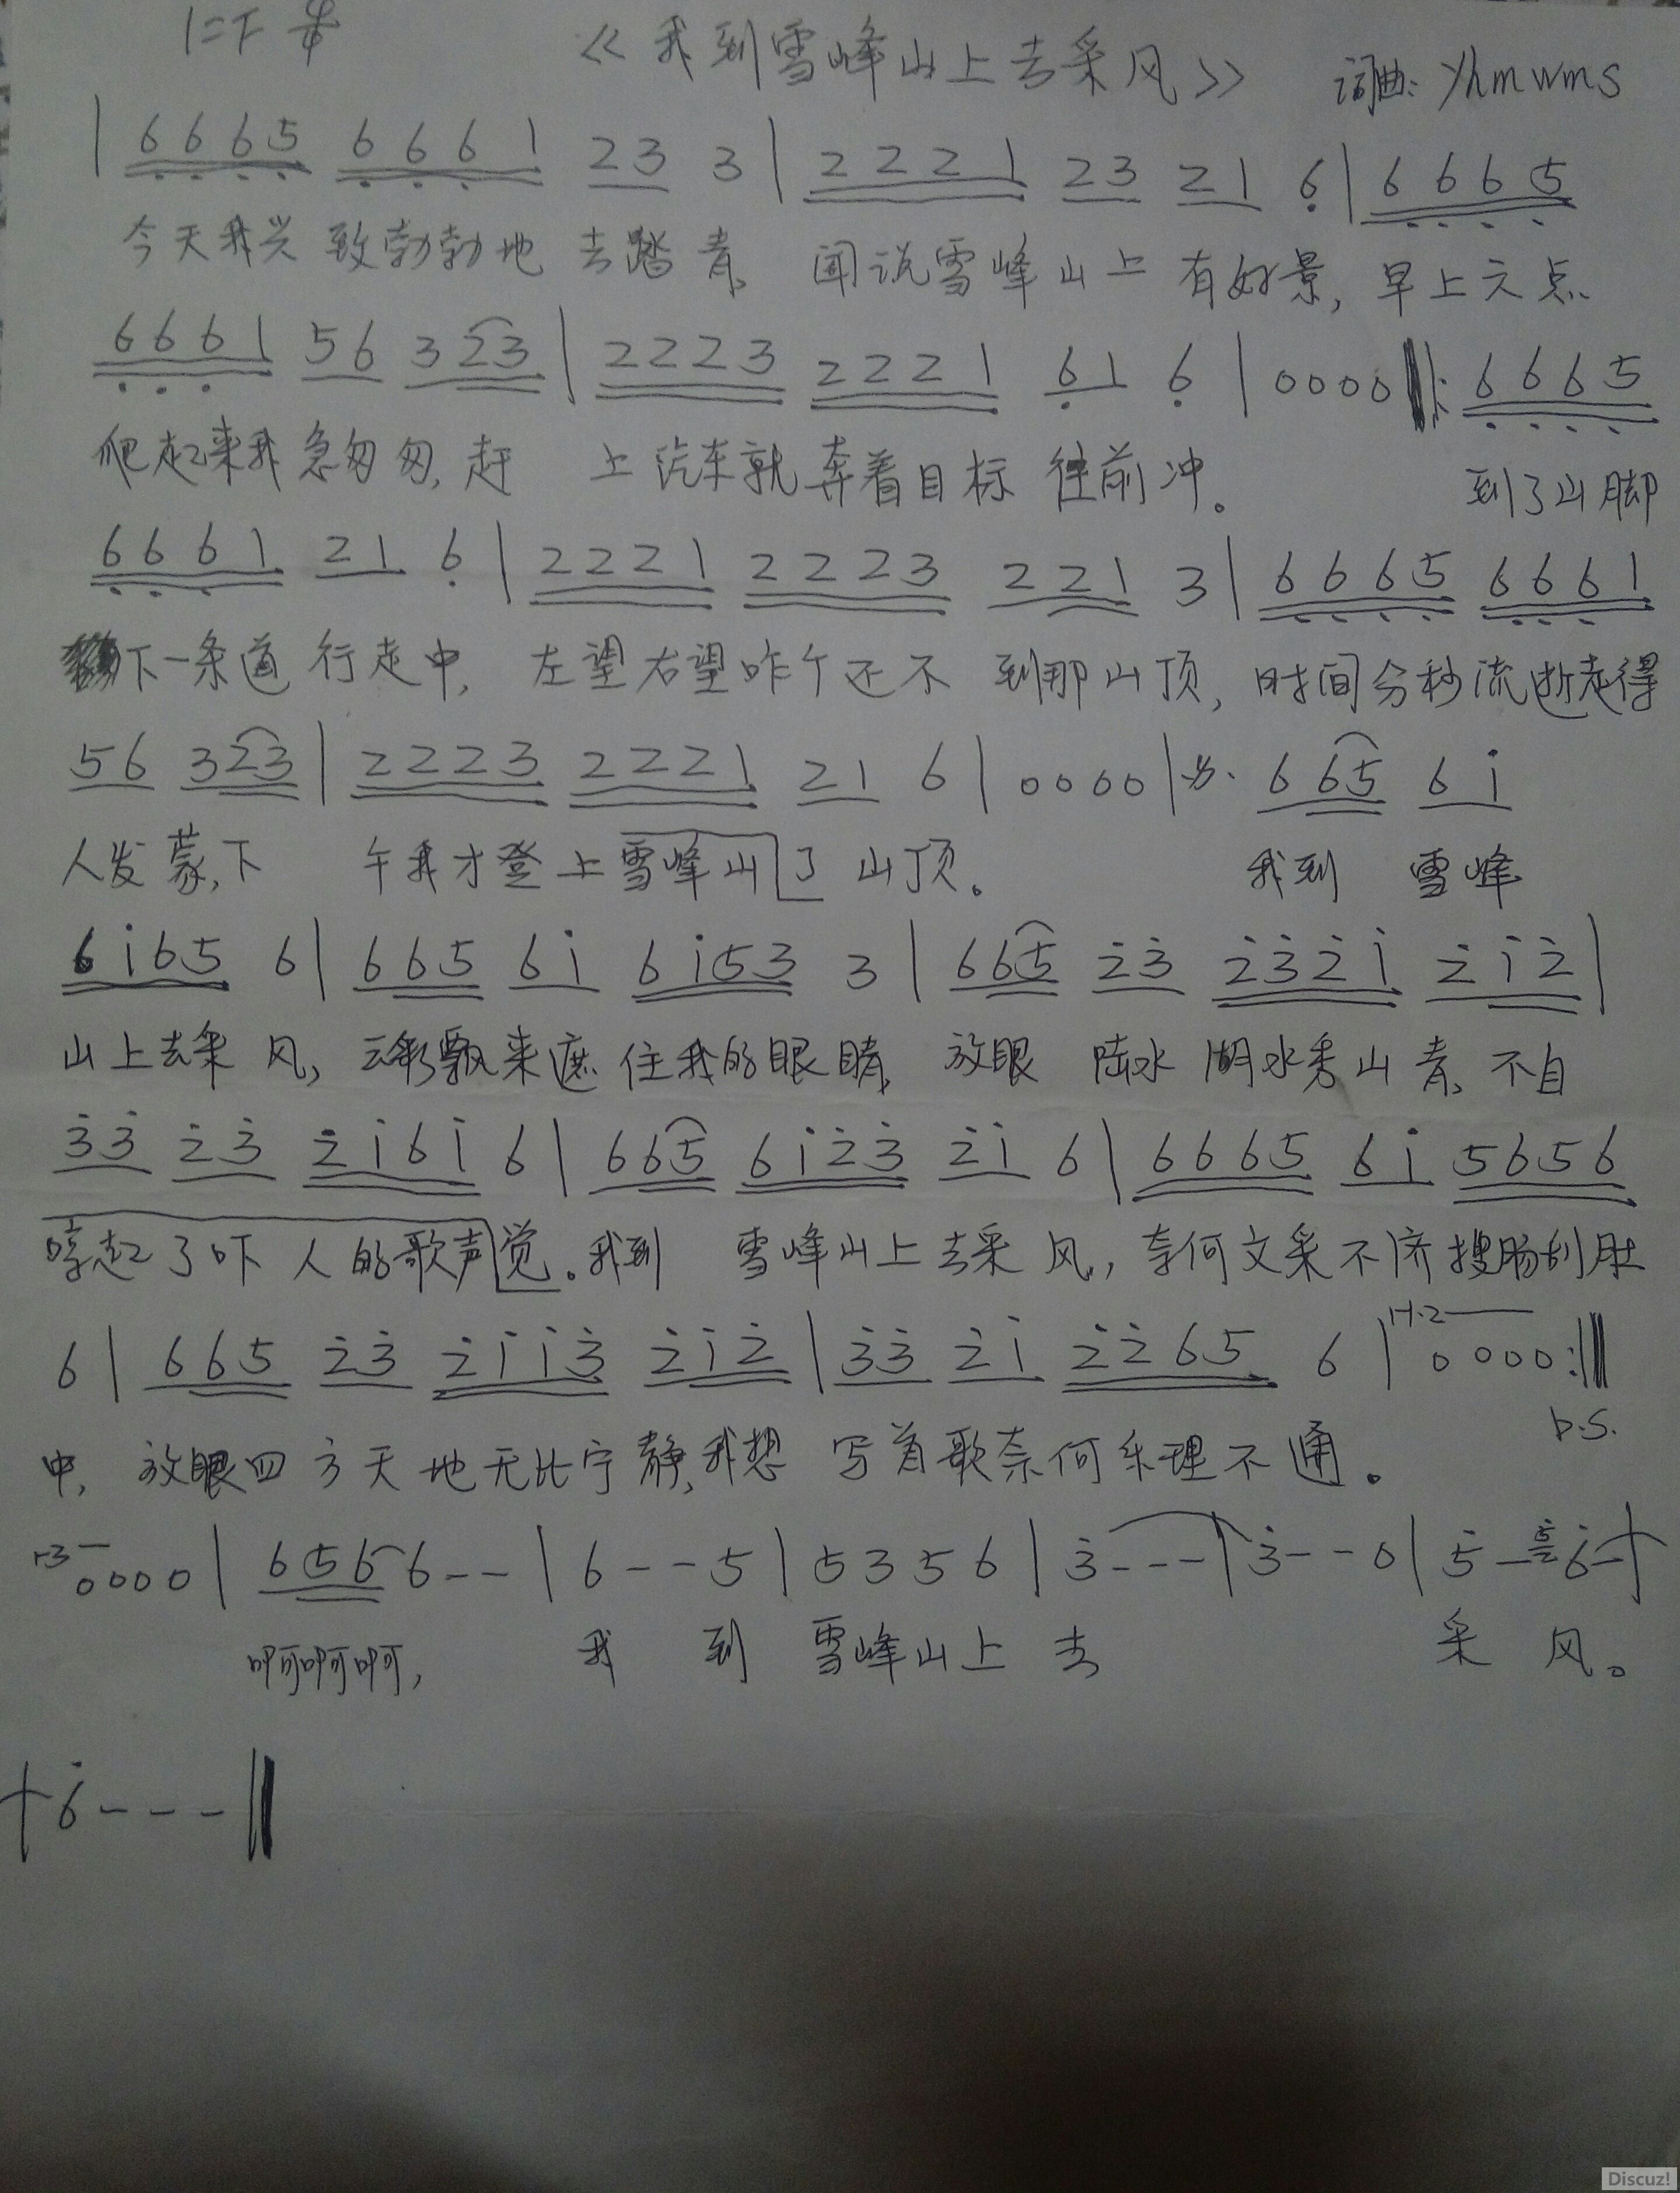 1=F 4/4 《我到雪峰山上去采风》 词曲: yhmwms
| 6665 6661 23 3 | 2221 23 21 6 | 6665
今天我兴致勃勃地去踏青, 闻说雪峰山上有好景, 早上六点
6661 56 323 | 2223 2221 61 6 | 0000 ‖: 6665
爬起来我急匆匆, 赶上汽车就奔着目标往前冲。 到了山脚
6661 21 6 | 2221 2223 221 3 | 6665 6661
下一条道行走中, 左望右望咋个还不到那山顶, 时间分秒流逝走得
56 323 | 2223 2221 21 6 | 0000 | 665 6i
人发蒙, 下午我才登上雪峰山了山顶。 我到雪峰
6i65 6 | 665 6i 6i53 3 | 665 2̇3̇ 2̇3̇2̇i 2̇i2̇ |
山上去采风, 云彩飘来遮住我的眼睛, 放眼陆水湖水秀山青, 不自
3̇3̇ 2̇3̇ 2̇i6i 6 | 665 6i2̇3̇ 2̇i 6 | 6665 6i 5656
哼起了吓人的歌声觉。我到雪峰山上去采风, 奈何文采不济搜肠刮肚
6 | 665 2̇3̇ 2̇ii3̇ 2̇i2̇ | 3̇3̇ 2̇i 2̇2̇65 6 | 1.2 0000 :‖
D.S.
中, 放眼四方天地无比宁静, 我想写首歌奈何乐理不通。
3 0000 | 656 6-- | 6--5 | 5356 | 3̇--- | 3̇--0 | 5̇- 6̇- |
啊啊啊, 我到雪峰山上去采风。
6̇--- ‖
Discuz!